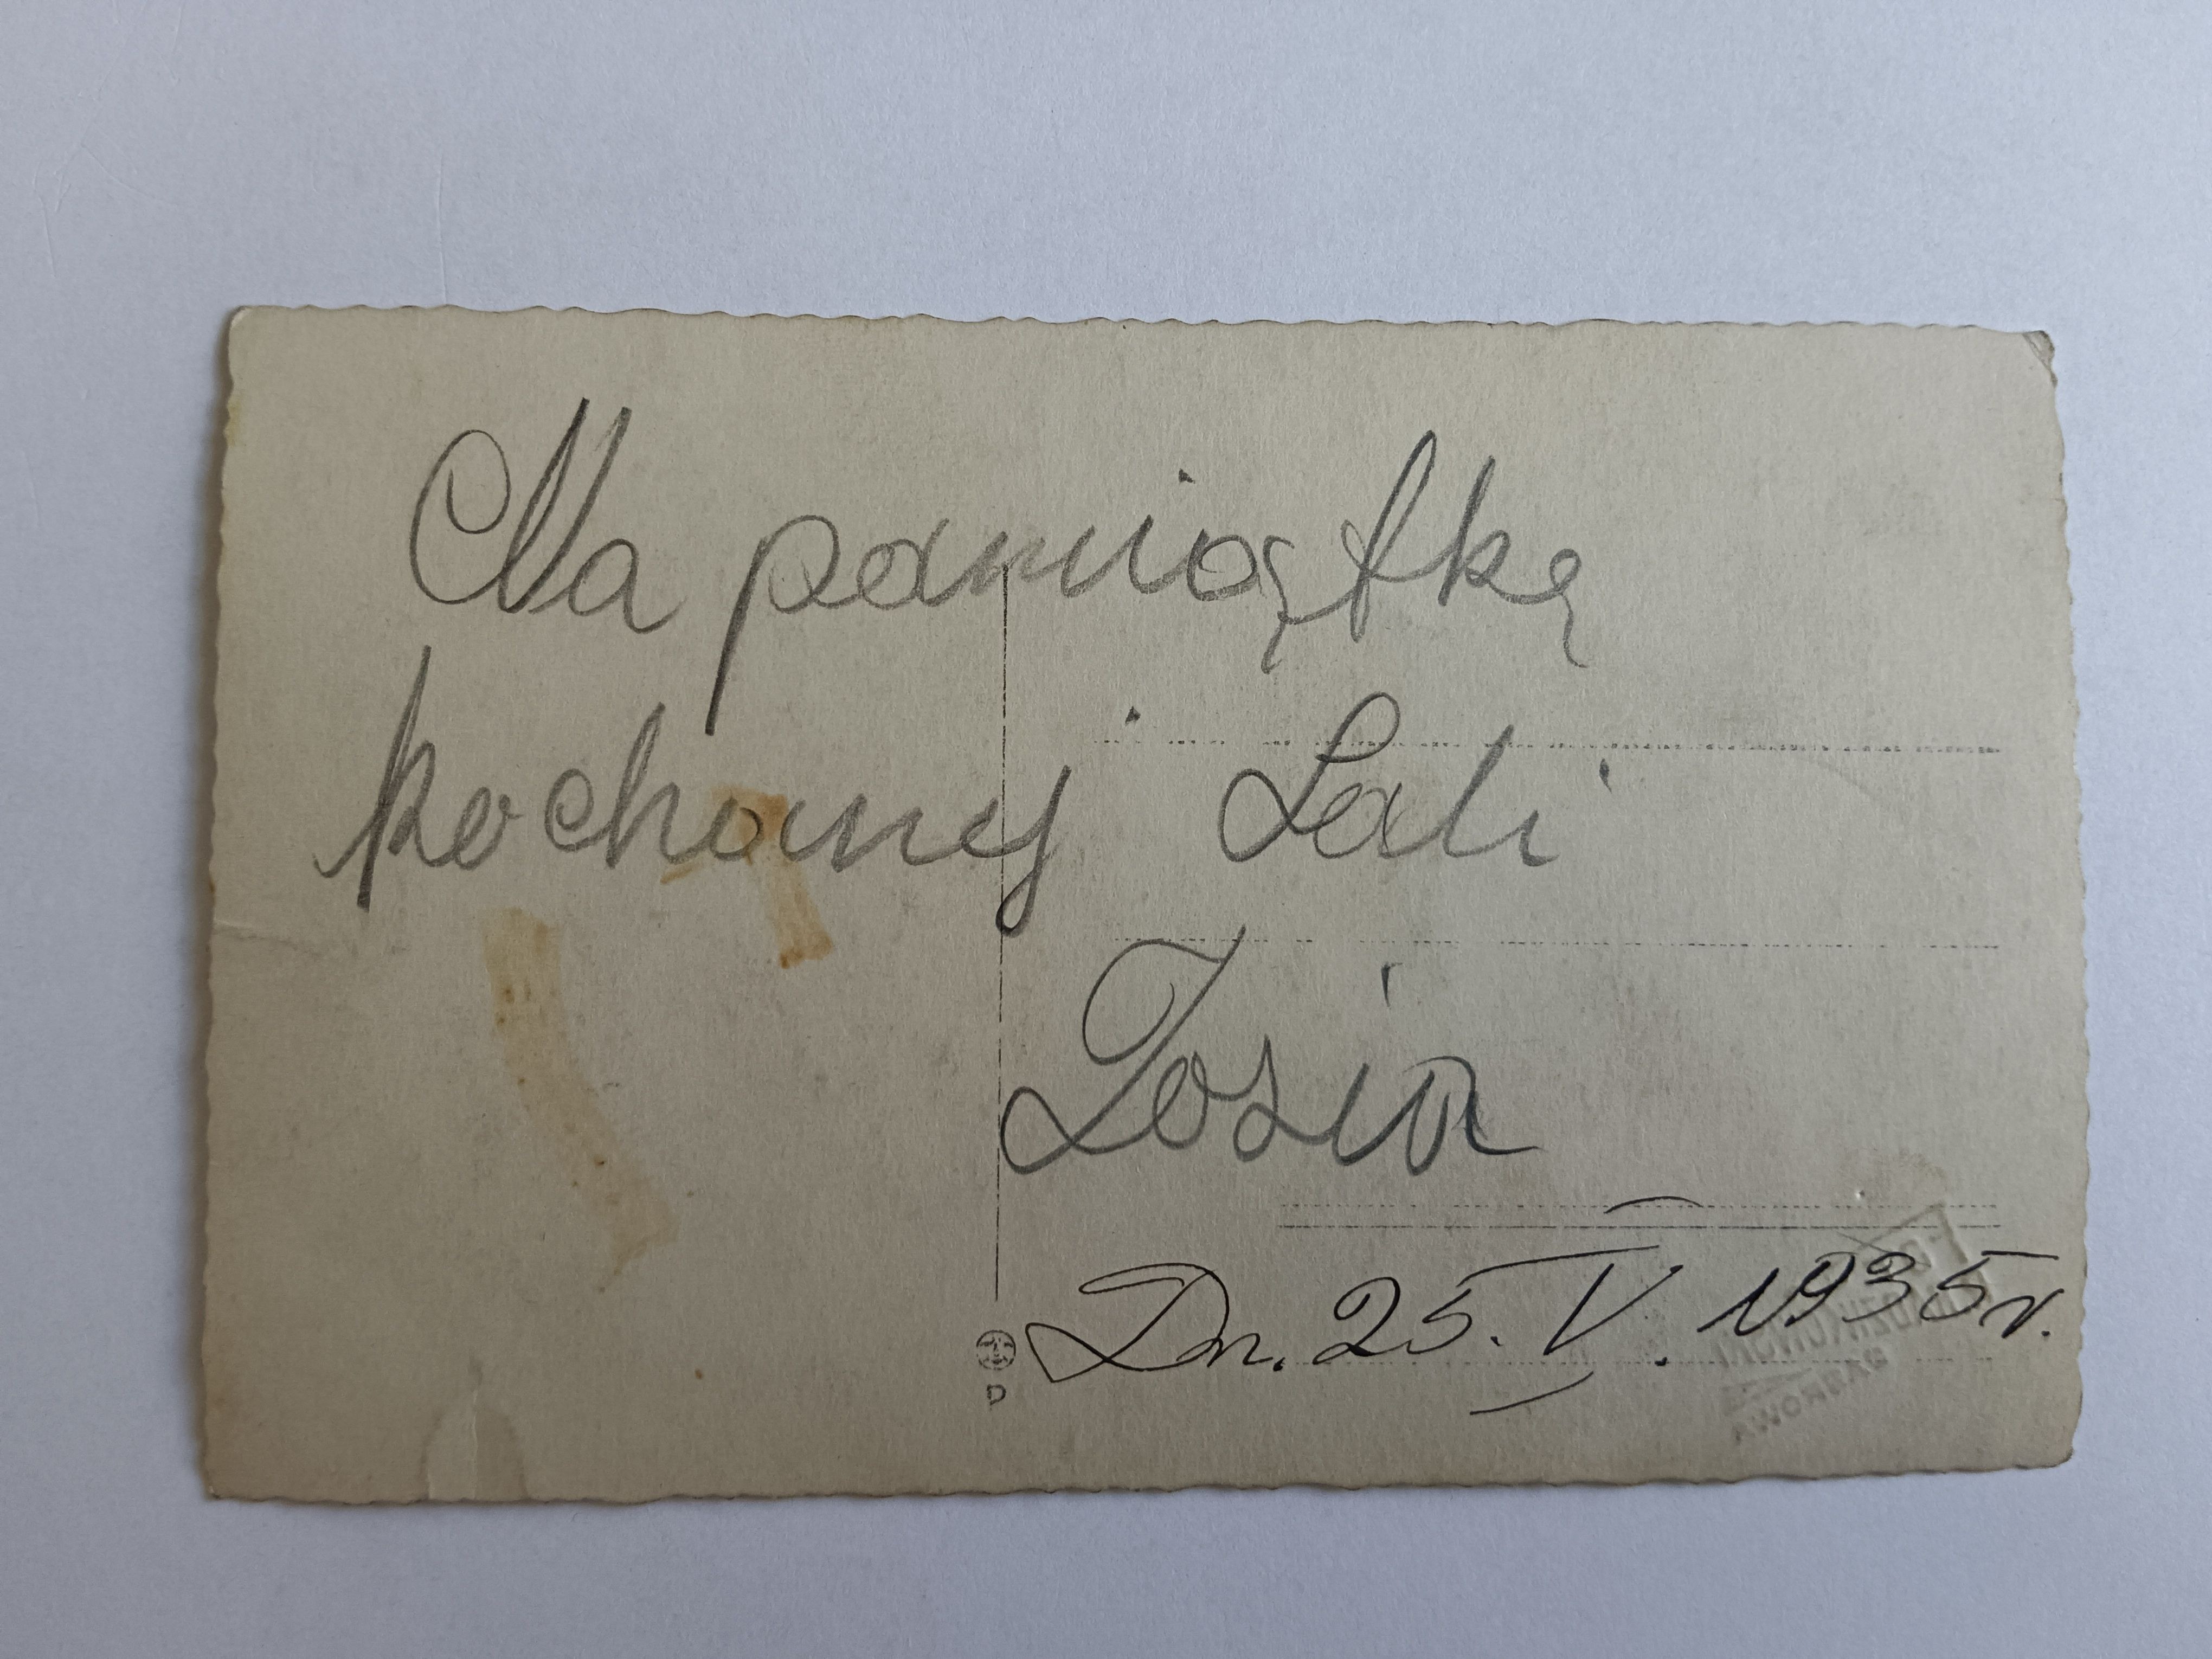 Na pamiątkę
kochanej Lali
Zosia
Dn. 25. V. 1935 r.
D